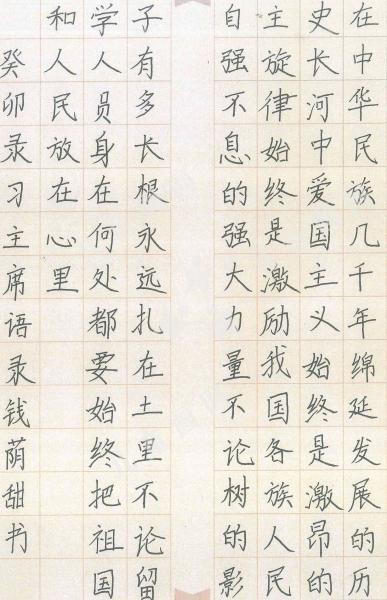 在中华民族几千年绵延发展的历
史长河中爱国主义始终是激昂的
主旋律始终是激励我国各族人民
自强不息的强大力量不论树的影
子有多长根永远扎在土里不论留
学人员身在何处都要始终把祖国
和人民放在心里
癸卯录习主席语录钱荫甜书